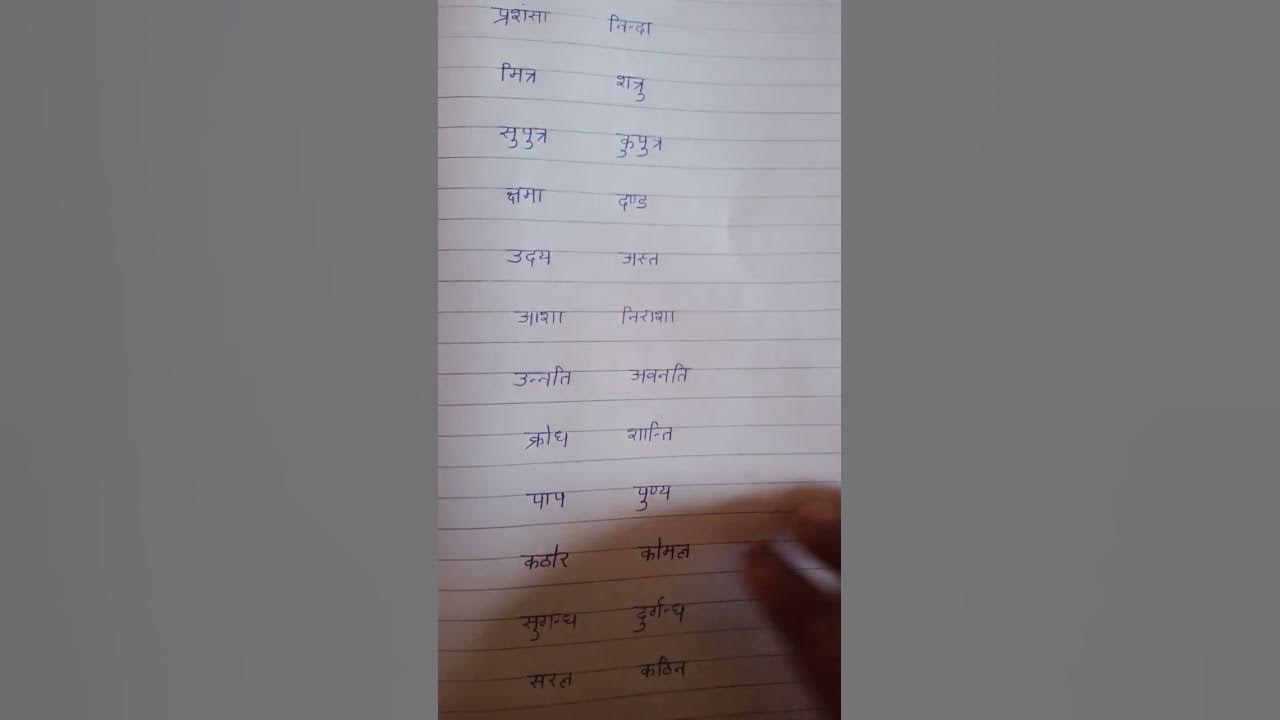 प्रशंसा निन्दा
मित्र शत्रु
सुपुत्र कुपुत्र
क्षमा दण्ड
उदय अस्त
आशा निराशा
उन्नति अवनति
क्रोध शान्ति
पाप पुण्य
कठोर कोमल
सुगन्ध दुर्गन्ध
सरल कठिन